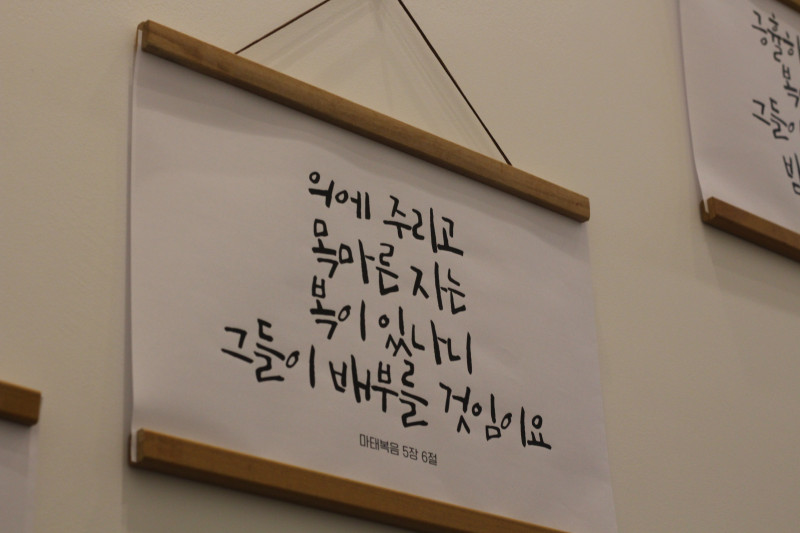 의에 주리고
목마른 자는
복이 있나니
그들이 배부를 것임이요
마태복음 5장 6절
긍휼히
복
그들이